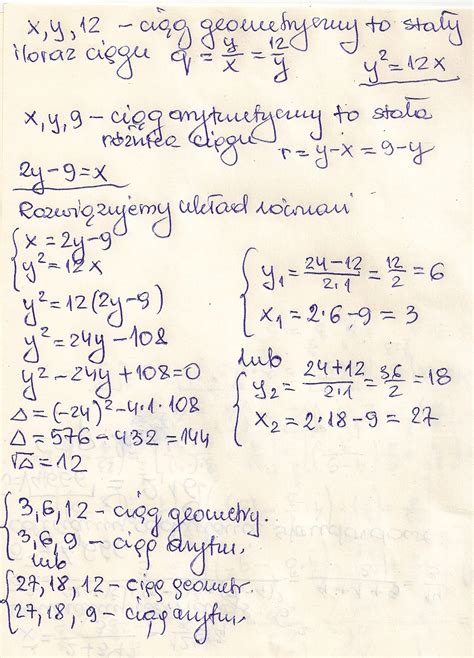 x, y, 12 – ciąg geometryczny to stały
iloraz ciągu q = y/x = 12/y
y² = 12x
x, y, 9 – ciąg arytmetyczny to stała
różnica ciągu r = y-x = 9-y
2y-9 = x
Rozwiązujemy układ równań
{ x = 2y-9
y² = 12x
y² = 12(2y-9)
y² = 24y - 108
y² - 24y + 108 = 0
Δ = (-24)² - 4·1·108
Δ = 576 - 432 = 144
√Δ = 12
{ y₁ = (24-12)/(2·1) = 12/2 = 6
x₁ = 2·6 - 9 = 3
lub
{ y₂ = (24+12)/(2·1) = 36/2 = 18
x₂ = 2·18 - 9 = 27
{ 3, 6, 12 – ciąg geometry.
3, 6, 9 – ciąg arytm.
lub
{ 27, 18, 12 – ciąg geometr.
27, 18, 9 – ciąg arytm.